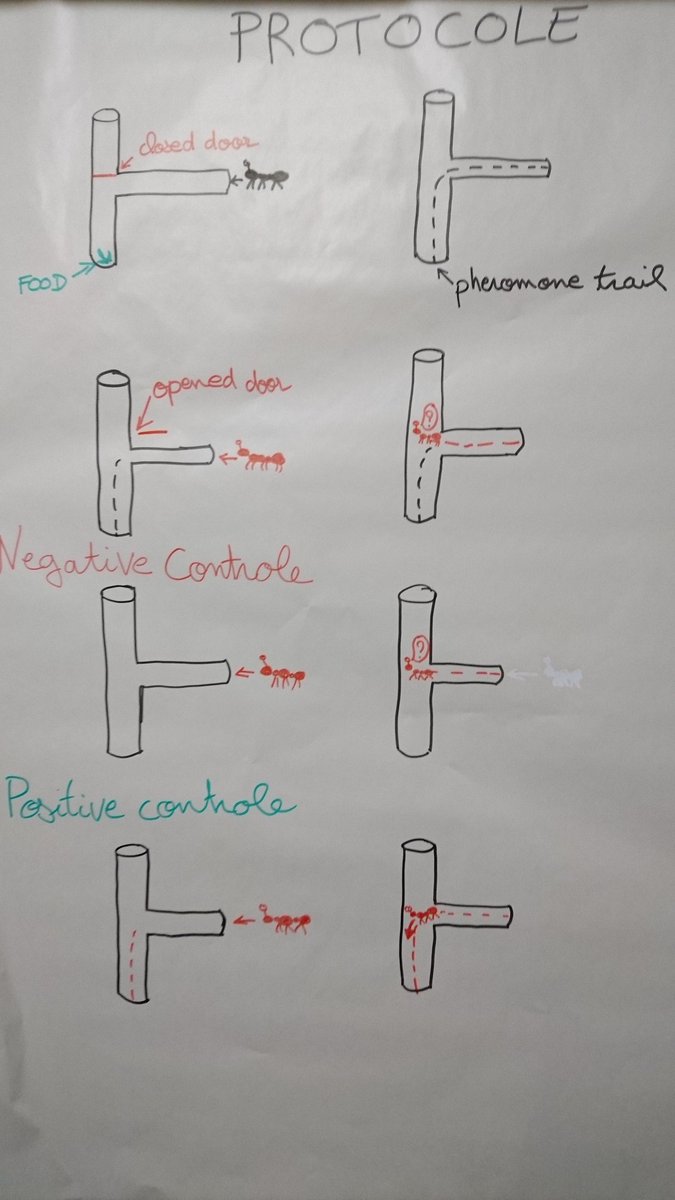 PROTOCOLE
closed door
FOOD
pheromone trail
opened door
?
Negative Controle
?
Positive controle